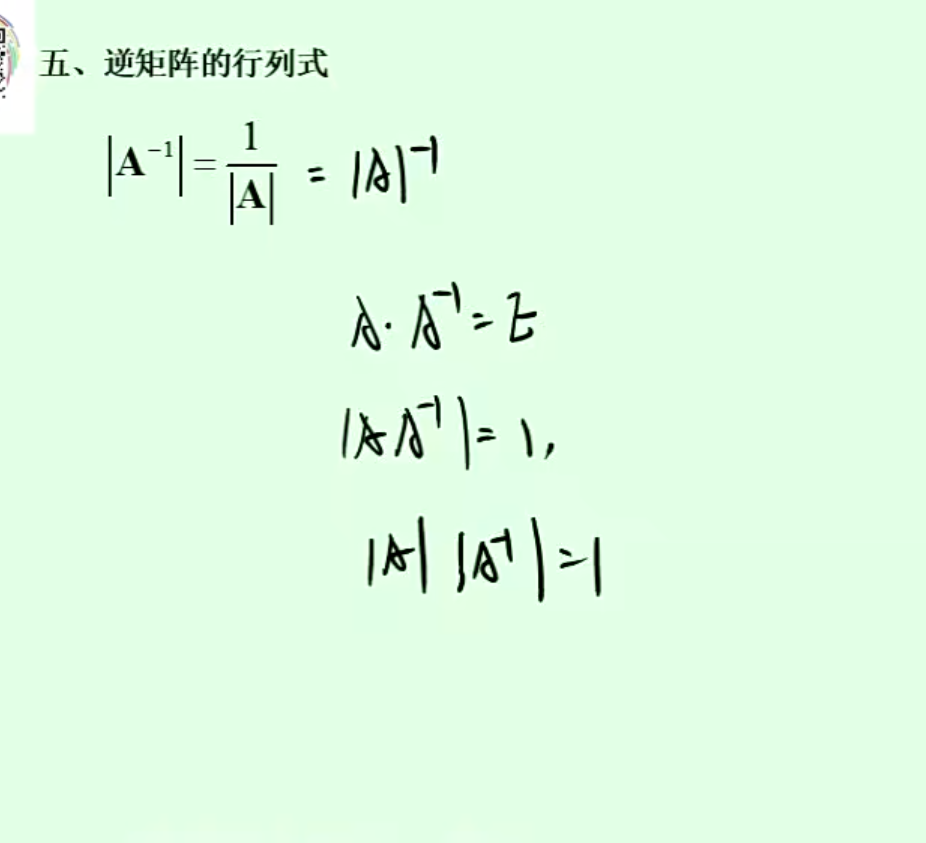 五、逆矩阵的行列式
|A⁻¹| = 1/|A| = |A|⁻¹
A · A⁻¹ = E
|A A⁻¹| = 1,
|A| |A⁻¹| = 1